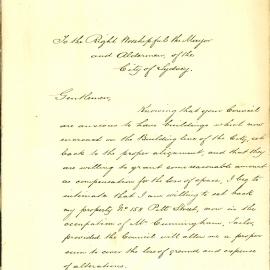 To the Right Worshipful the Mayor
and Aldermen, of the
City of Sydney.
Gentlemen,
Knowing that your Council
are anxious to have buildings which now
encroach on the Building line of the City, set
back to the proper alignment, and that they
are willing to grant some reasonable amount
as compensation for the loss of space, I beg to
intimate that I am willing to set back
my property No 158 Pitt Street, now in the
occupation of Mr Cunningham, Tailor,
provided the Council will allow me a proper
sum to cover the loss of ground and expense
of alterations.